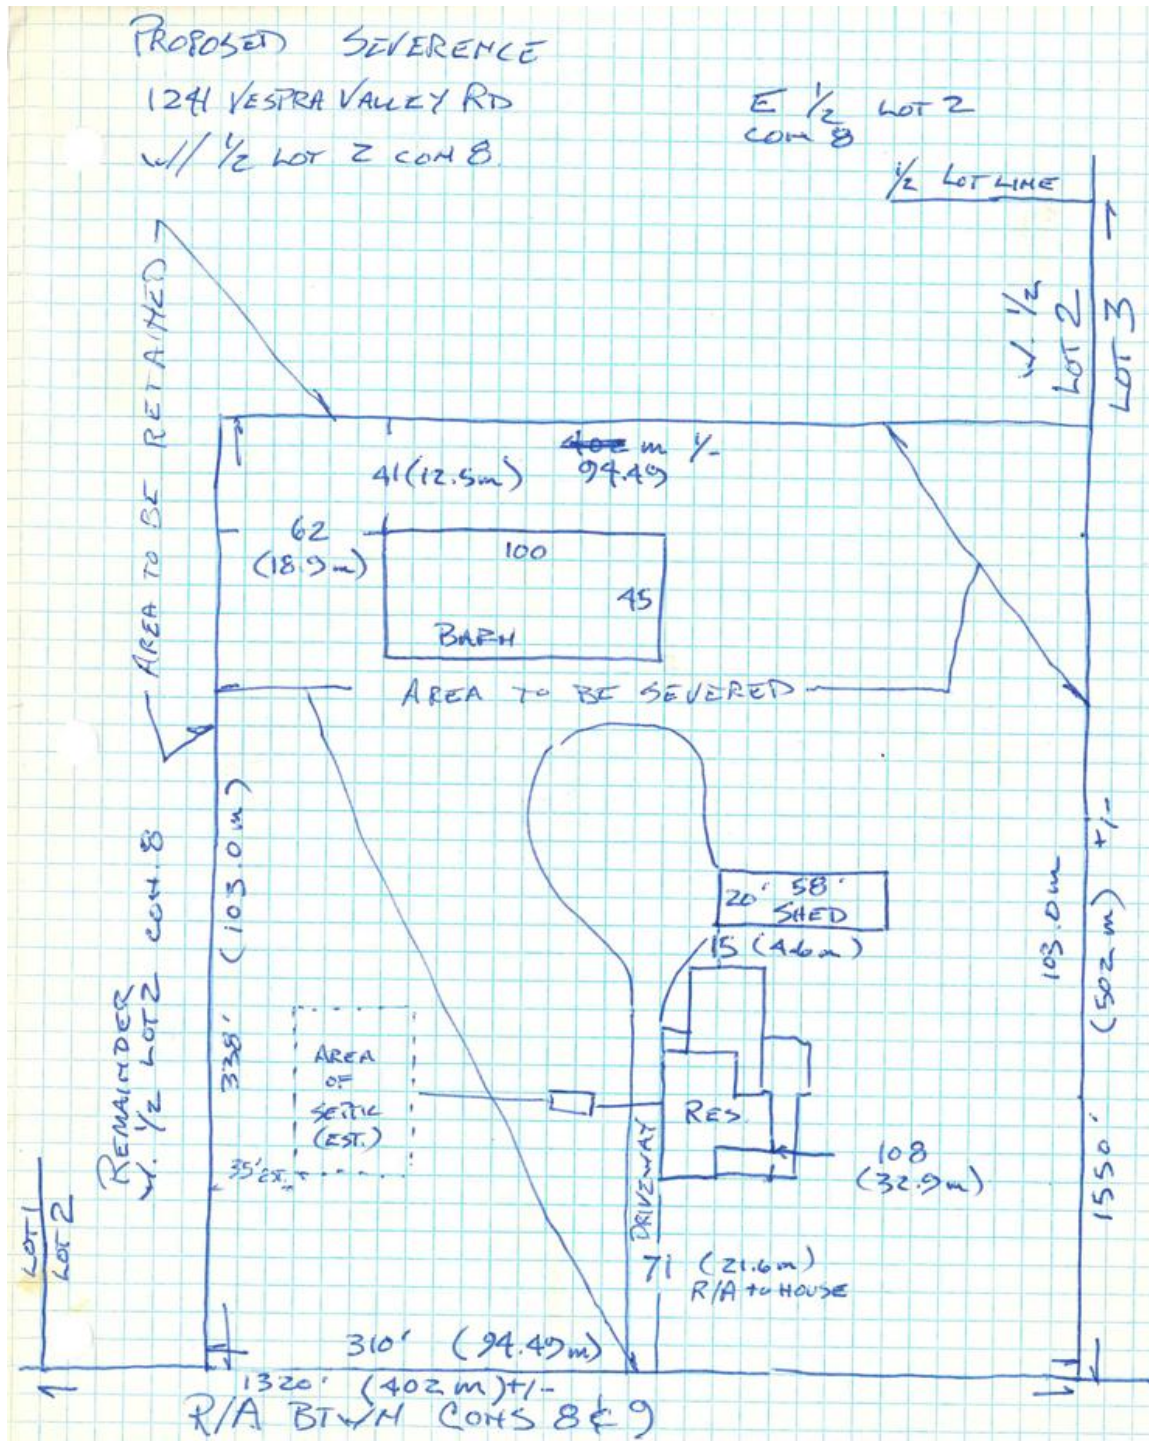 PROPOSED SEVERENCE
1241 VESPRA VALLEY RD
W// 1/2 LOT 2 CON 8
E 1/2 LOT 2
CON 8
1/2 LOT LINE
W. 1/2
LOT 2
LOT 3
AREA TO BE RETAINED
402 m +/-
94.49
41 (12.5m)
62
(18.9m)
100
45
BARN
AREA TO BE SEVERED
338' (103.0m)
REMAINDER
W. 1/2 LOT 2 CON. 8
20' 58'
SHED
15 (4.6m)
103.0m
1550' (502 m) +/-
AREA
OF
SEPTIC
(EST.)
35' EST.
RES.
108
(32.9m)
DRIVEWAY
71 (21.6m)
R/A to HOUSE
LOT 1
LOT 2
310' (94.49m)
1320' (402 m) +/-
R/A BTWN CONS 8 & 9